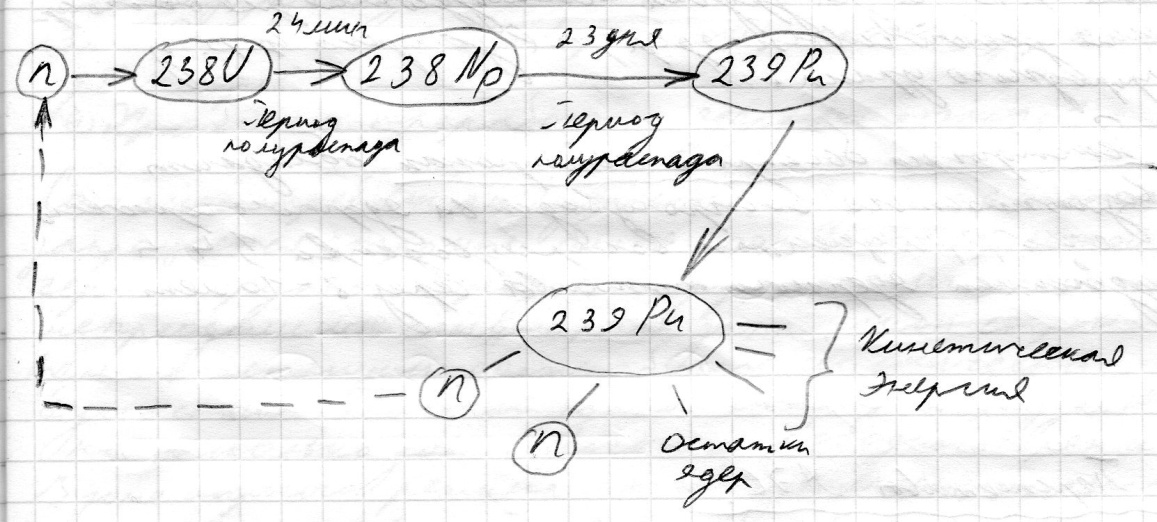 24 мин
23 дня
n
238U
238 Np
239 Pu
Период
полураспада
Период
полураспада
239 Pu
Кинетическая
Энергия
n
n
Остатки
ядер